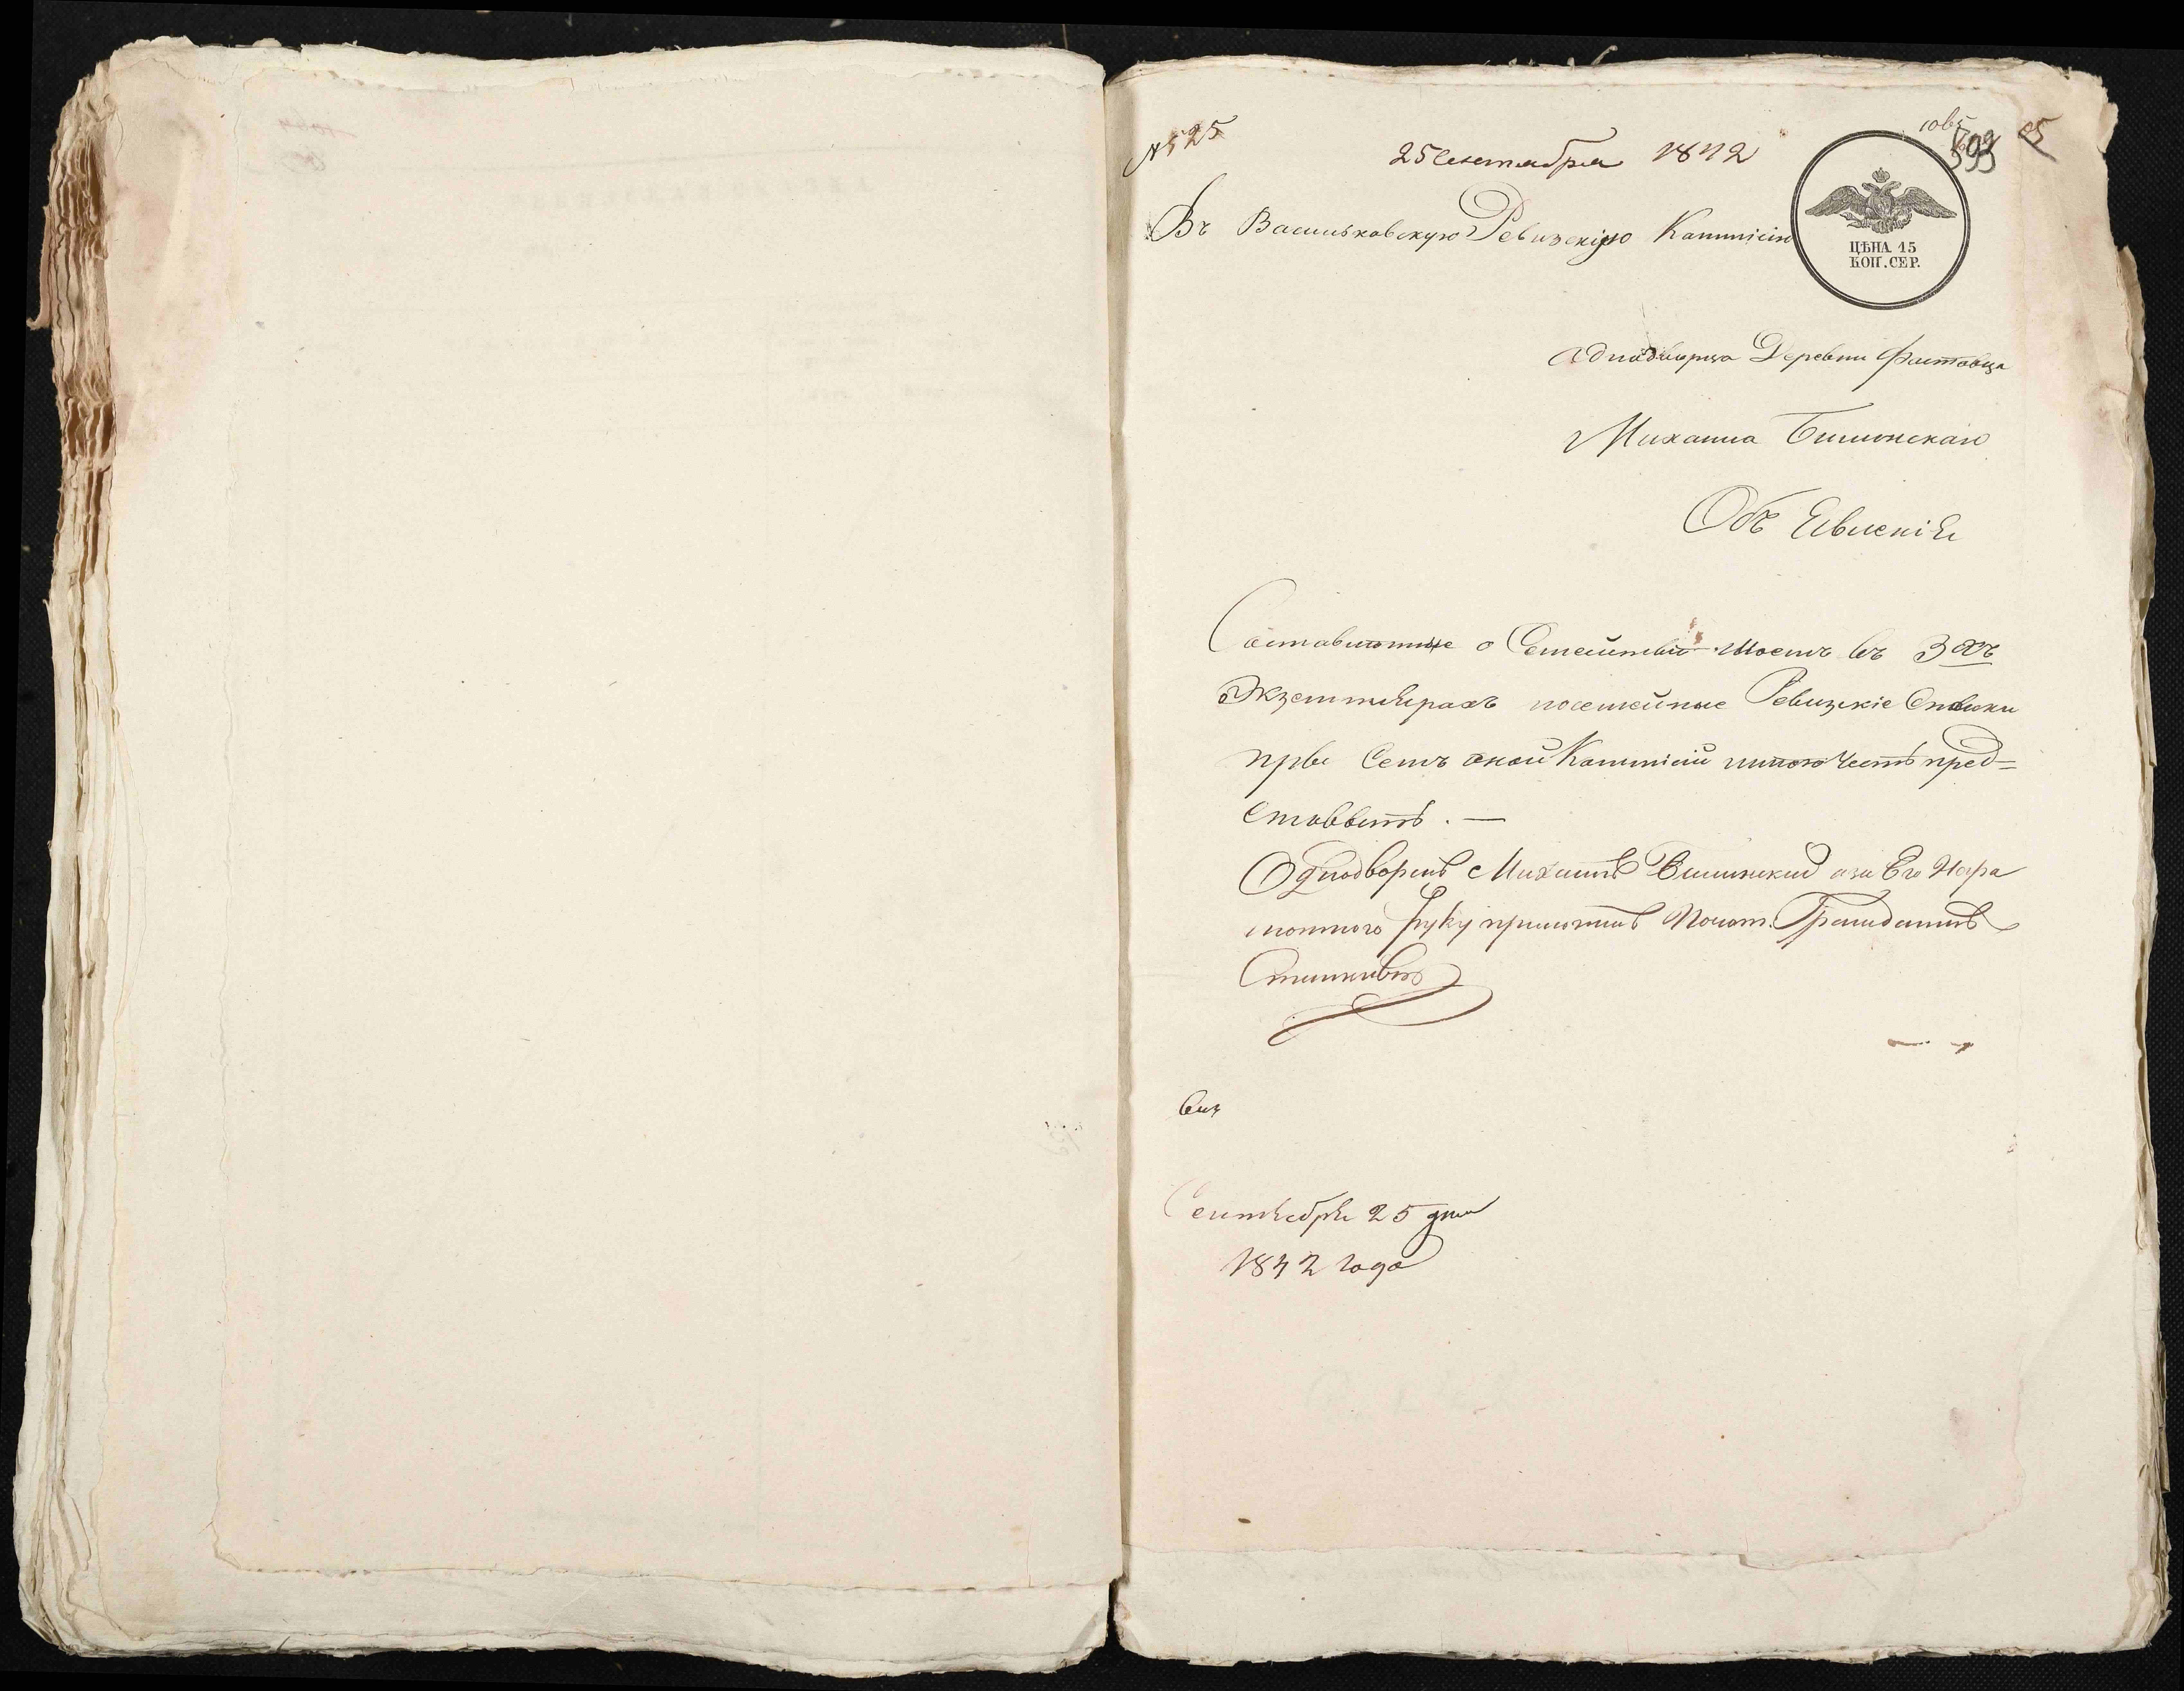 N 525
25 Сентября 1842
1065
599
85
Въ Васильковскую Ревизскую Коммисію
ЦѢНА 15
КОП. СЕР.
однодворца Деревни Фастовца
Михаила Билинскаго
Объ Явленіе
Составленные о Семействѣ Моемъ въ 3хъ
Экземплярахъ посемейные Ревизкіе Списки
при Семъ оной Коммисіи имѣю Честь пред=
ставить. —
Однодворецъ Михаилъ Билинский а за Его Негра
мотного руку приложилъ Почет. Гражданинъ
Сентября 25 дня
1842 года